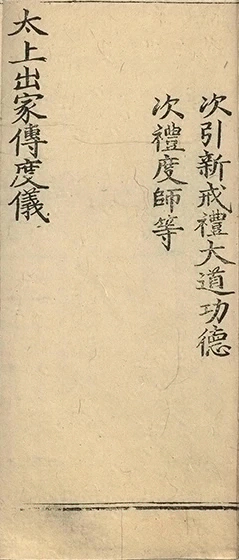 次引新戒禮大道功德
次禮度師等
太上出家傳度儀